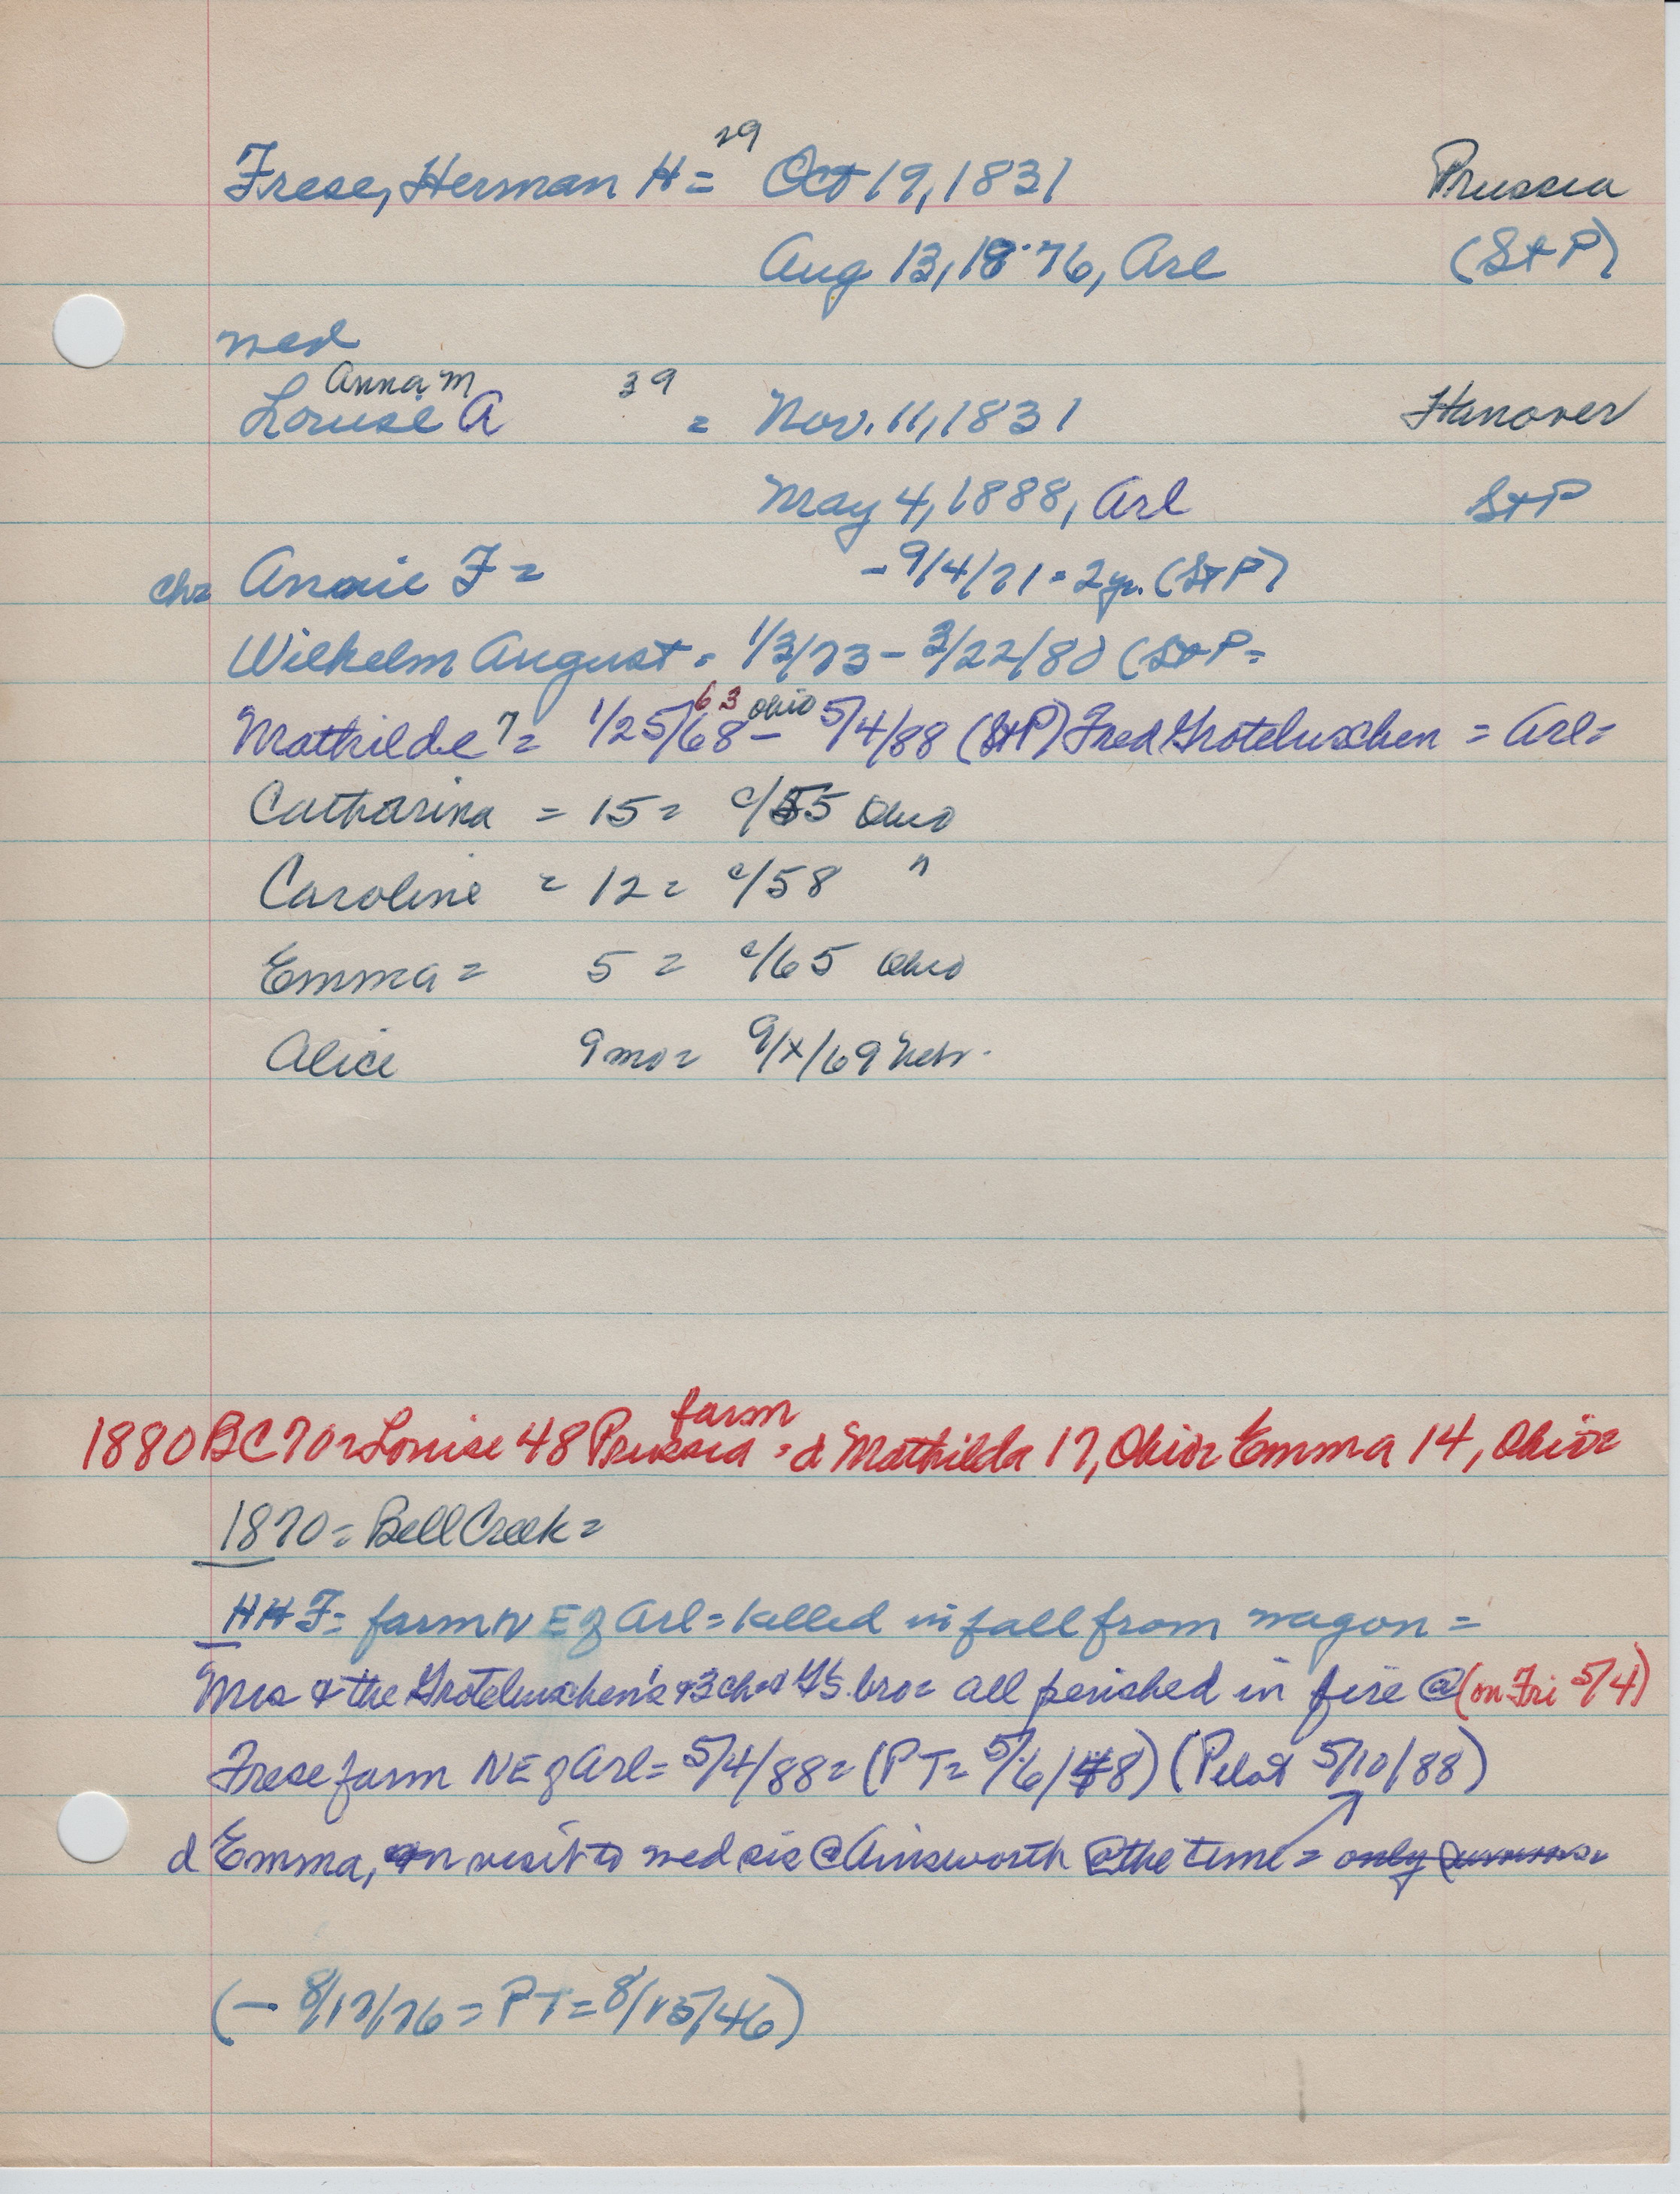 29
Frese, Herman H = Oct 19, 1831 Prussia
Aug 13, 1876, Arl (St P)
wed
Anna M 39
Louise A = Nov. 11, 1831 Hanover
May 4, 1888, Arl St P
ch= Annie F = - 9/4/71 = 2 yr. (St P)
Wilhelm August = 1/3/73 - 3/22/80 (St P =
63 Ohio
Mathilde 7 = 1/25/68 - 5/4/88 (St P) Fred Groteluschen = Arl =
Catharina = 15 = c/55 Ohio
Caroline = 12 = c/58 "
Emma = 5 = c/65 Ohio
Alice 9 mo = 9/x/69 Nebr.
farm
1880 BC 70 = Louise 48 Prussia = d Mathilda 17, Ohio = Emma 14, Ohio =
1870 = Bell Creek =
HHF = farm NE of Arl = killed in fall from wagon =
Mrs & the Groteluschen's & 3 ch = & G's bro = all perished in fire @ (on Fri 5/4)
Frese farm NE of Arl = 5/4/88 = (PT = 5/6/48) (Pilot 5/10/88)
d Emma, on visit to wed sis @ Ainsworth @ the time = only
(- 8/17/76 = PT = 8/15/46)